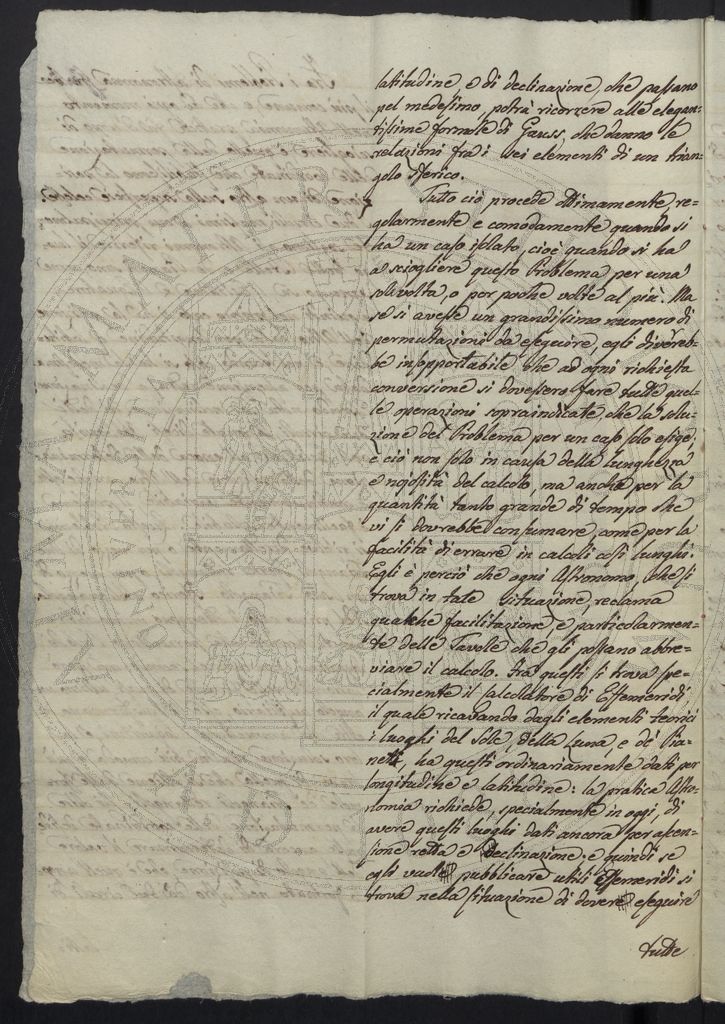 latitudine e di declinazione, che passano
pel medesimo, potrà ricorrere alle elegan-
tissime formole di Gauss, che danno le
relazioni fra i sei elementi di un trian-
golo sferico.
Tutto ciò procede ottimamente, re-
golarmente e comodamente quando si
ha un caso isolato, cioè quando si ha
a sciogliere questo Problema per una
sola volta, o per poche volte al più. Ma
se si avesse un grandissimo numero di
permutazioni da eseguire, egli diverreb-
be insopportabile che ad ogni richiesta
conversione si dovessero fare tutte quel-
le operazioni sopraindicate, che la solu-
zione del Problema per un caso solo esige;
e ciò non solo in causa della lunghezza
e nojosità del calcolo, ma anche per la
quantità tanto grande di tempo che
vi si dovrebbe consumare, come per la
facilità di errare in calcoli così lunghi.
Egli è perciò che ogni Astronomo, che si
trova in tale situazione, reclama
qualche facilitazione, e particolarmen-
te delle Tavole che gli possano abbre-
viare il calcolo. Fra questi si trova spe-
cialmente il Calcolatore di Effemeridi
il quale ricavando dagli elementi teorici
i luoghi del Sole, della Luna, e de' Pia-
neti, ha questi ordinariamente dati per
longitudine e latitudine: la pratica Astro-
nomia richiede, specialmente in oggi, di
avere questi luoghi dati ancora per ascen-
sione retta e declinazione; e quindi se
egli vuole pubblicare utili Effemeridi si
trova nella situazione di dovere eseguire
tutte